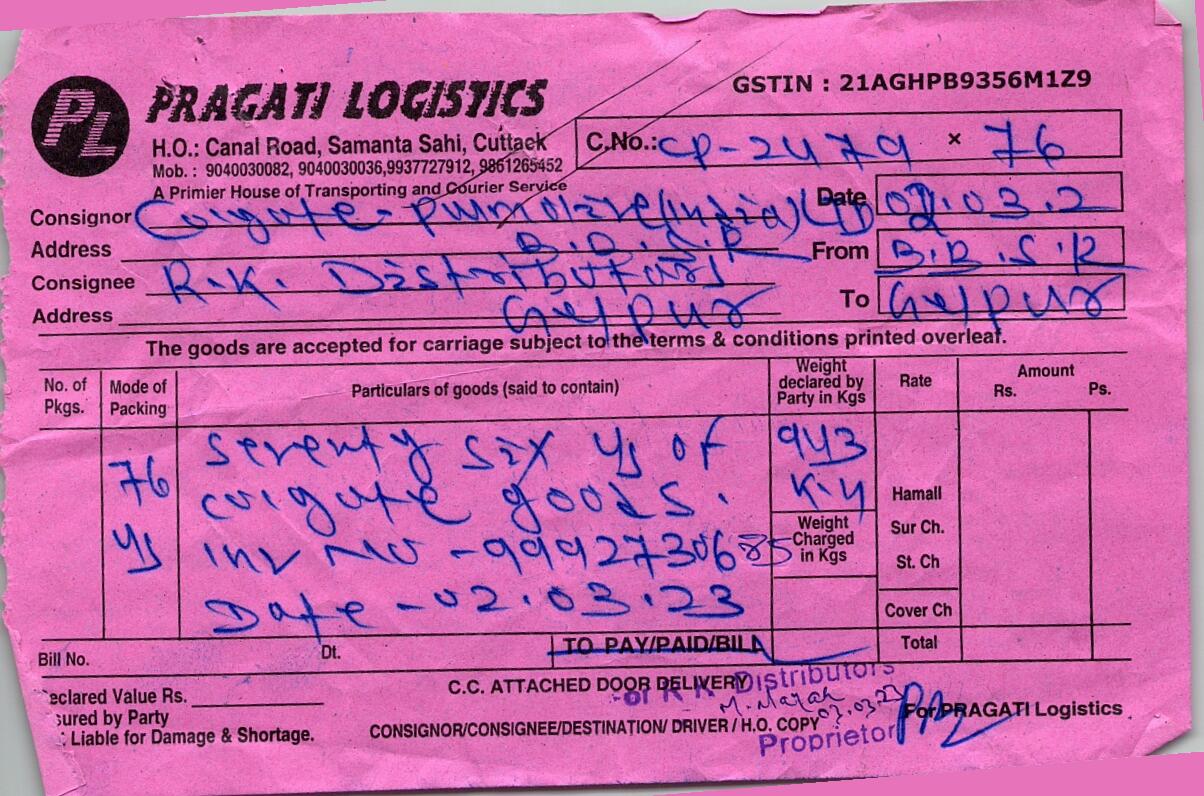 GSTIN : 21AGHPB9356M1Z9
PL PRAGATI LOGISTICS
H.O.: Canal Road, Samanta Sahi, Cuttack
C.No.: CP-2479 × 76
Mob. : 9040030082, 9040030036,9937727912, 9861265452
A Primier House of Transporting and Courier Service
Consignor Colgate-Palmolive(India) LTD Date 02.03.2
Address B.D.S.R From B.D.S.R
Consignee R.K. Distributors
Address Gajpur To Gajpur
The goods are accepted for carriage subject to the terms & conditions printed overleaf.
No. of Pkgs. Mode of Packing Particulars of goods (said to contain) Weight declared by Party in Kgs Rate Amount Rs. Ps.
seventy six of 943
76 colgate goods. K.g Hamali
Inv No -99927306 85 Weight Charged in Kgs Sur Ch.
St. Ch
Date -02.03.23 Cover Ch
Bill No. Dt. TO PAY/PAID/BILL Total
eclared Value Rs. C.C. ATTACHED DOOR DELIVERY
or R K Distributors
sured by Party
03.03.23 For PRAGATI Logistics
: Liable for Damage & Shortage. CONSIGNOR/CONSIGNEE/DESTINATION/ DRIVER / H.O. COPY
Proprietor